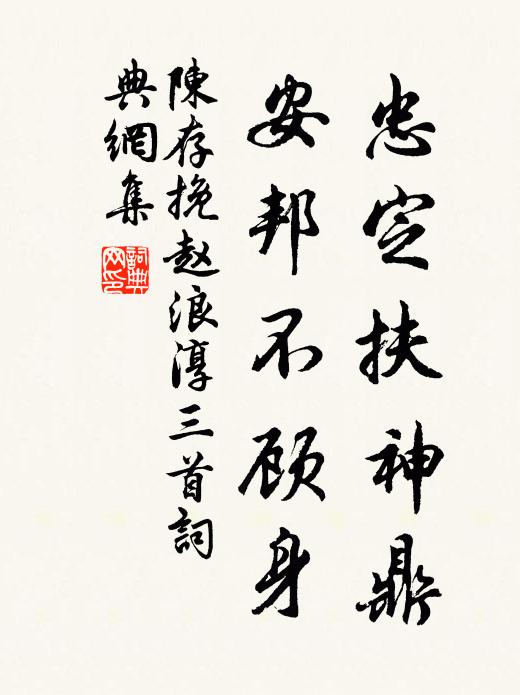 忠定扶神鼎
安邦不顾身
陳存挽赵浪淳三首詞
典網集
詞典网印